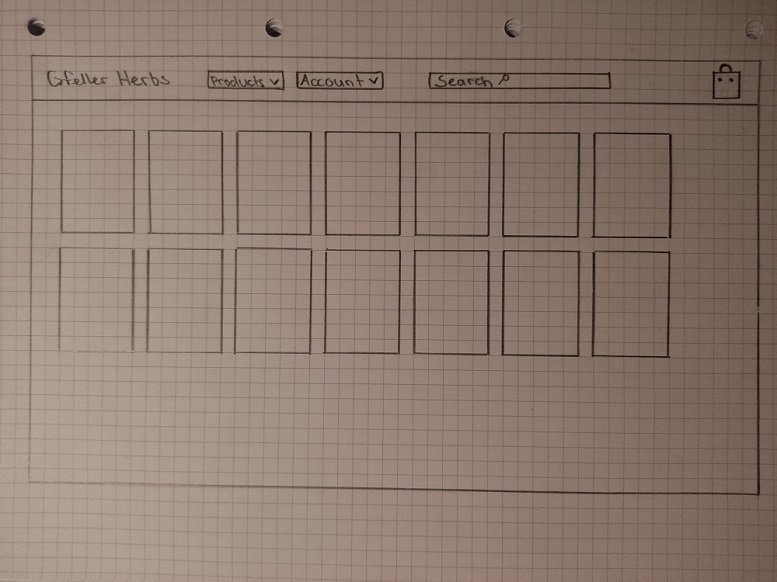 Gfeller Herbs Products Account Search